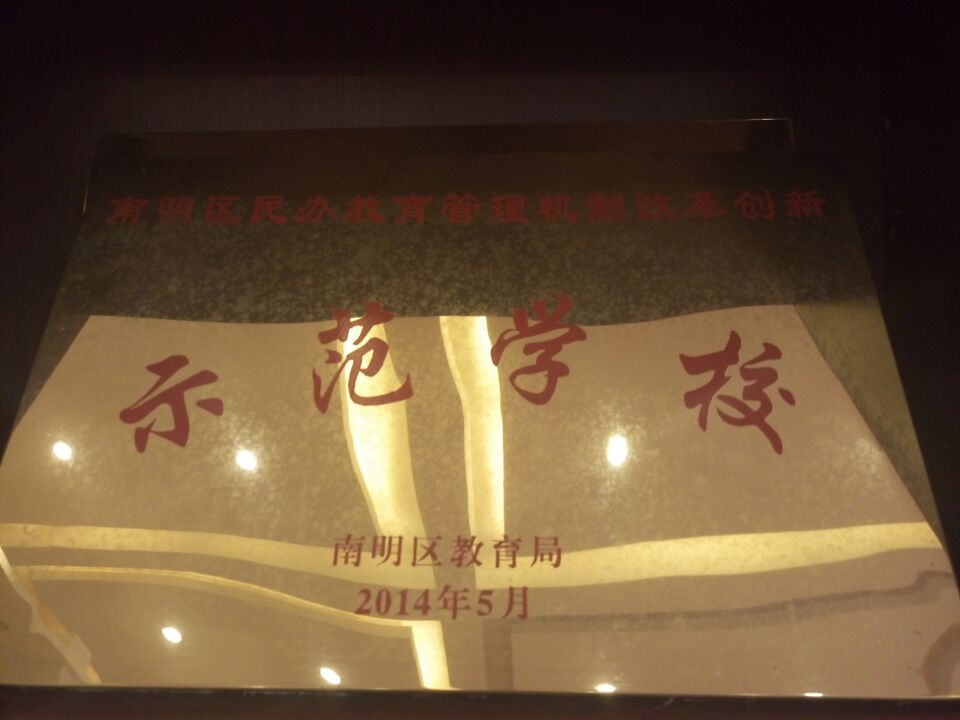 南明区民办教育管理机制改革创新
示范学校
南明区教育局
2014年5月